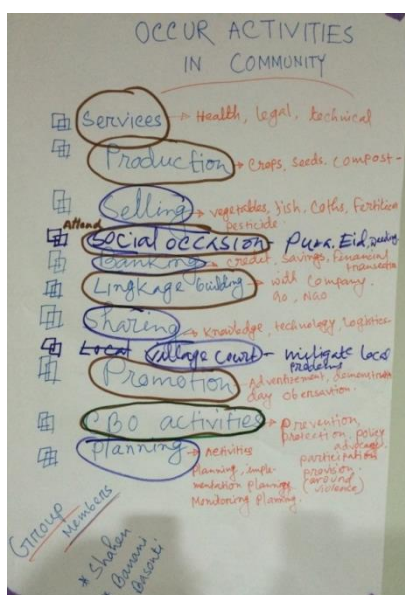 OCCUR ACTIVITIES
IN COMMUNITY
Services → Health, legal, technical
Production → Crops, seeds, compost-
Selling → vegetables, fish, Coths, Fertilizer
pesticide
Attend
Social occasion - Puza, Eid, wedding
Banking → credit, savings, financial
transaction
Lingkage building → with Company,
GO, NGO
Sharing → Knowledge, technology, logistics
Local village court - mitigate local
problems
Promotion → Advertisement, demonstration
day obersvation.
CBO activities → prevention,
protection, policy
advocacy,
participation
provision
(around
violence)
Planning → Activities
planning, imple-
mentation planning,
Monitoring planning.
Group
Members
* Shahen
* Banani
Basonti